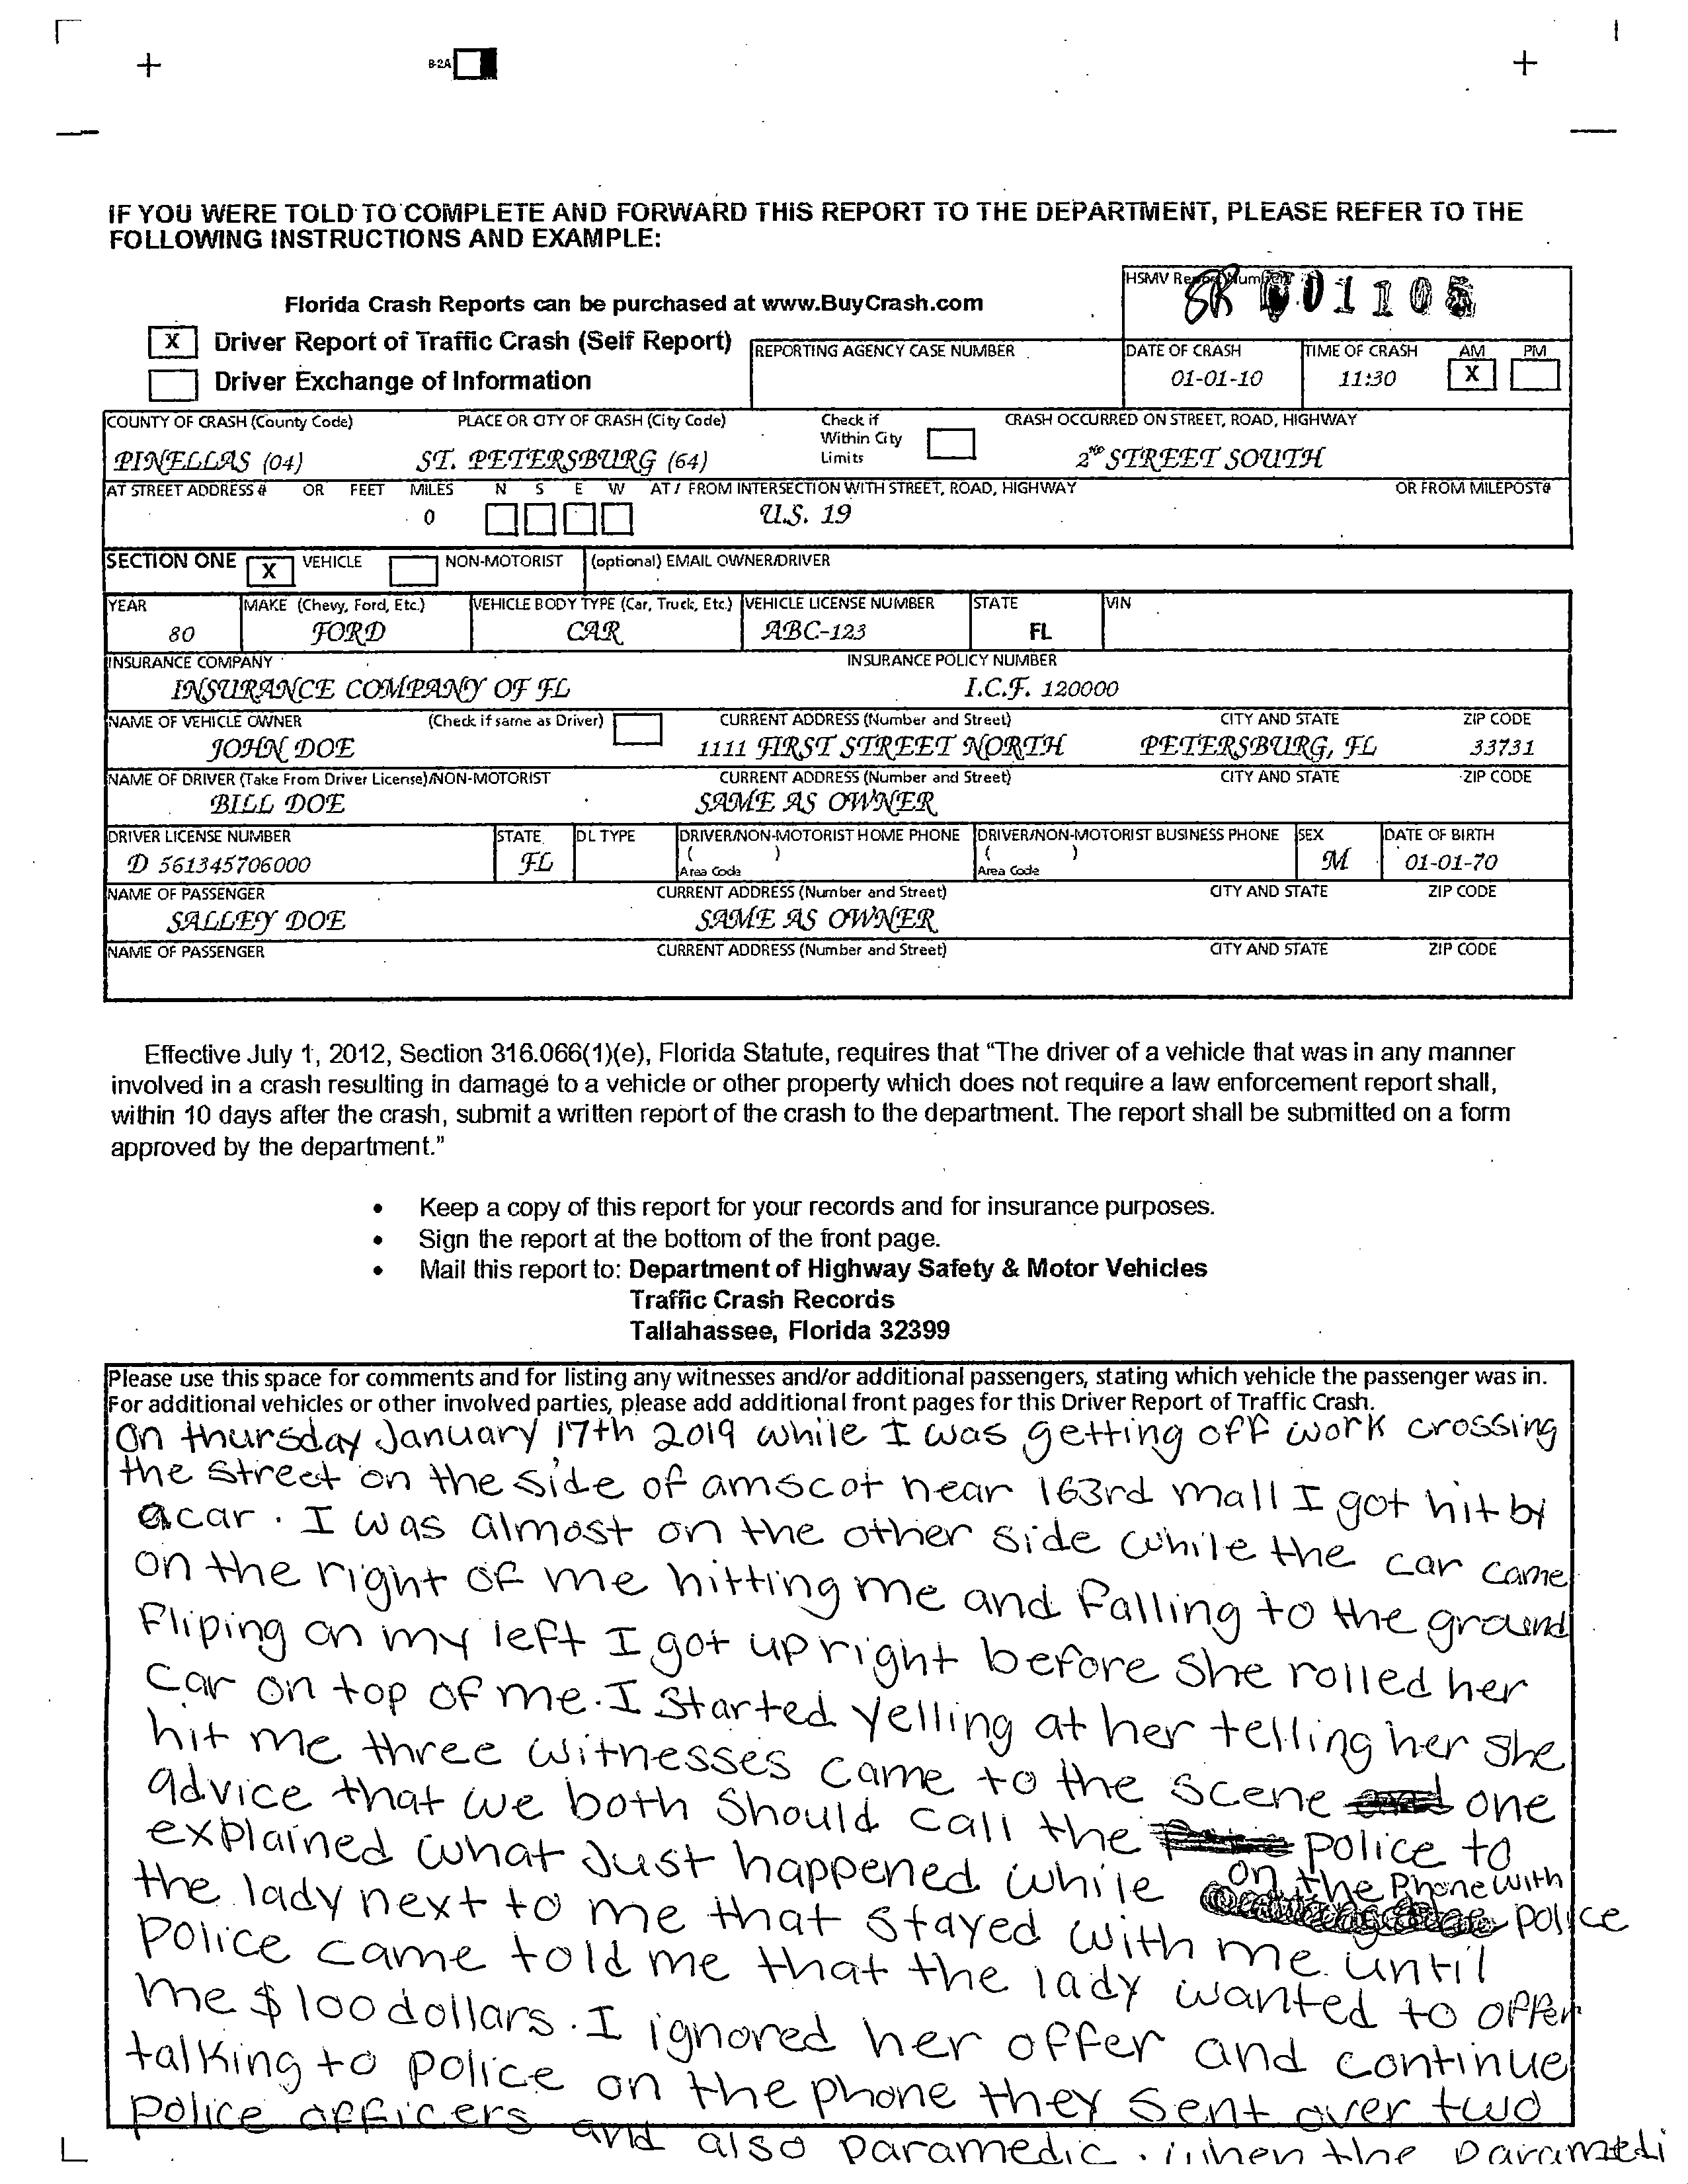 B-2A
IF YOU WERE TOLD TO COMPLETE AND FORWARD THIS REPORT TO THE DEPARTMENT, PLEASE REFER TO THE
FOLLOWING INSTRUCTIONS AND EXAMPLE:
Florida Crash Reports can be purchased at www.BuyCrash.com
HSMV Report Number
01105
X Driver Report of Traffic Crash (Self Report)
Driver Exchange of Information
REPORTING AGENCY CASE NUMBER
DATE OF CRASH TIME OF CRASH AM PM
01-01-10 11:30 X
COUNTY OF CRASH (County Code) PLACE OR CITY OF CRASH (City Code) Check if Within City Limits CRASH OCCURRED ON STREET, ROAD, HIGHWAY
PINELLAS (04) ST. PETERSBURG (64) 2ND STREET SOUTH
AT STREET ADDRESS # OR FEET MILES N S E W AT / FROM INTERSECTION WITH STREET, ROAD, HIGHWAY OR FROM MILEPOST#
0 U.S. 19
SECTION ONE X VEHICLE NON-MOTORIST (optional) EMAIL OWNER/DRIVER
YEAR MAKE (Chevy, Ford, Etc.) VEHICLE BODY TYPE (Car, Truck, Etc.) VEHICLE LICENSE NUMBER STATE VIN
80 FORD CAR ABC-123 FL
INSURANCE COMPANY INSURANCE POLICY NUMBER
INSURANCE COMPANY OF FL I.C.F. 120000
NAME OF VEHICLE OWNER (Check if same as Driver) CURRENT ADDRESS (Number and Street) CITY AND STATE ZIP CODE
JOHN DOE 1111 FIRST STREET NORTH PETERSBURG, FL 33731
NAME OF DRIVER (Take From Driver License)/NON-MOTORIST CURRENT ADDRESS (Number and Street) CITY AND STATE ZIP CODE
BILL DOE SAME AS OWNER
DRIVER LICENSE NUMBER STATE DL TYPE DRIVER/NON-MOTORIST HOME PHONE DRIVER/NON-MOTORIST BUSINESS PHONE SEX DATE OF BIRTH
D 561345706000 FL ( ) Area Code ( ) Area Code M 01-01-70
NAME OF PASSENGER CURRENT ADDRESS (Number and Street) CITY AND STATE ZIP CODE
SALLEY DOE SAME AS OWNER
NAME OF PASSENGER CURRENT ADDRESS (Number and Street) CITY AND STATE ZIP CODE
Effective July 1, 2012, Section 316.066(1)(e), Florida Statute, requires that “The driver of a vehicle that was in any manner
involved in a crash resulting in damage to a vehicle or other property which does not require a law enforcement report shall,
within 10 days after the crash, submit a written report of the crash to the department. The report shall be submitted on a form
approved by the department.”
• Keep a copy of this report for your records and for insurance purposes.
• Sign the report at the bottom of the front page.
• Mail this report to: Department of Highway Safety & Motor Vehicles
Traffic Crash Records
Tallahassee, Florida 32399
Please use this space for comments and for listing any witnesses and/or additional passengers, stating which vehicle the passenger was in.
For additional vehicles or other involved parties, please add additional front pages for this Driver Report of Traffic Crash.
On thursday January 17th 2019 while I was getting off work crossing
the street on the side of amscot near 163rd mall I got hit by
a car. I was almost on the other side while the car came
on the right of me hitting me and falling to the ground
fliping on my left I got up right before she rolled her
car on top of me. I started yelling at her telling her she
hit me three witnesses came to the scene one
advice that we both should call the police to
explained what Just happened while on the Phone with police
the lady next to me that stayed with me until
Police came told me that the lady wanted to offer
me $100 dollars. I ignored her offer and continue
talking to police on the phone they sent over two
police officers and also paramedic. when the paramedi